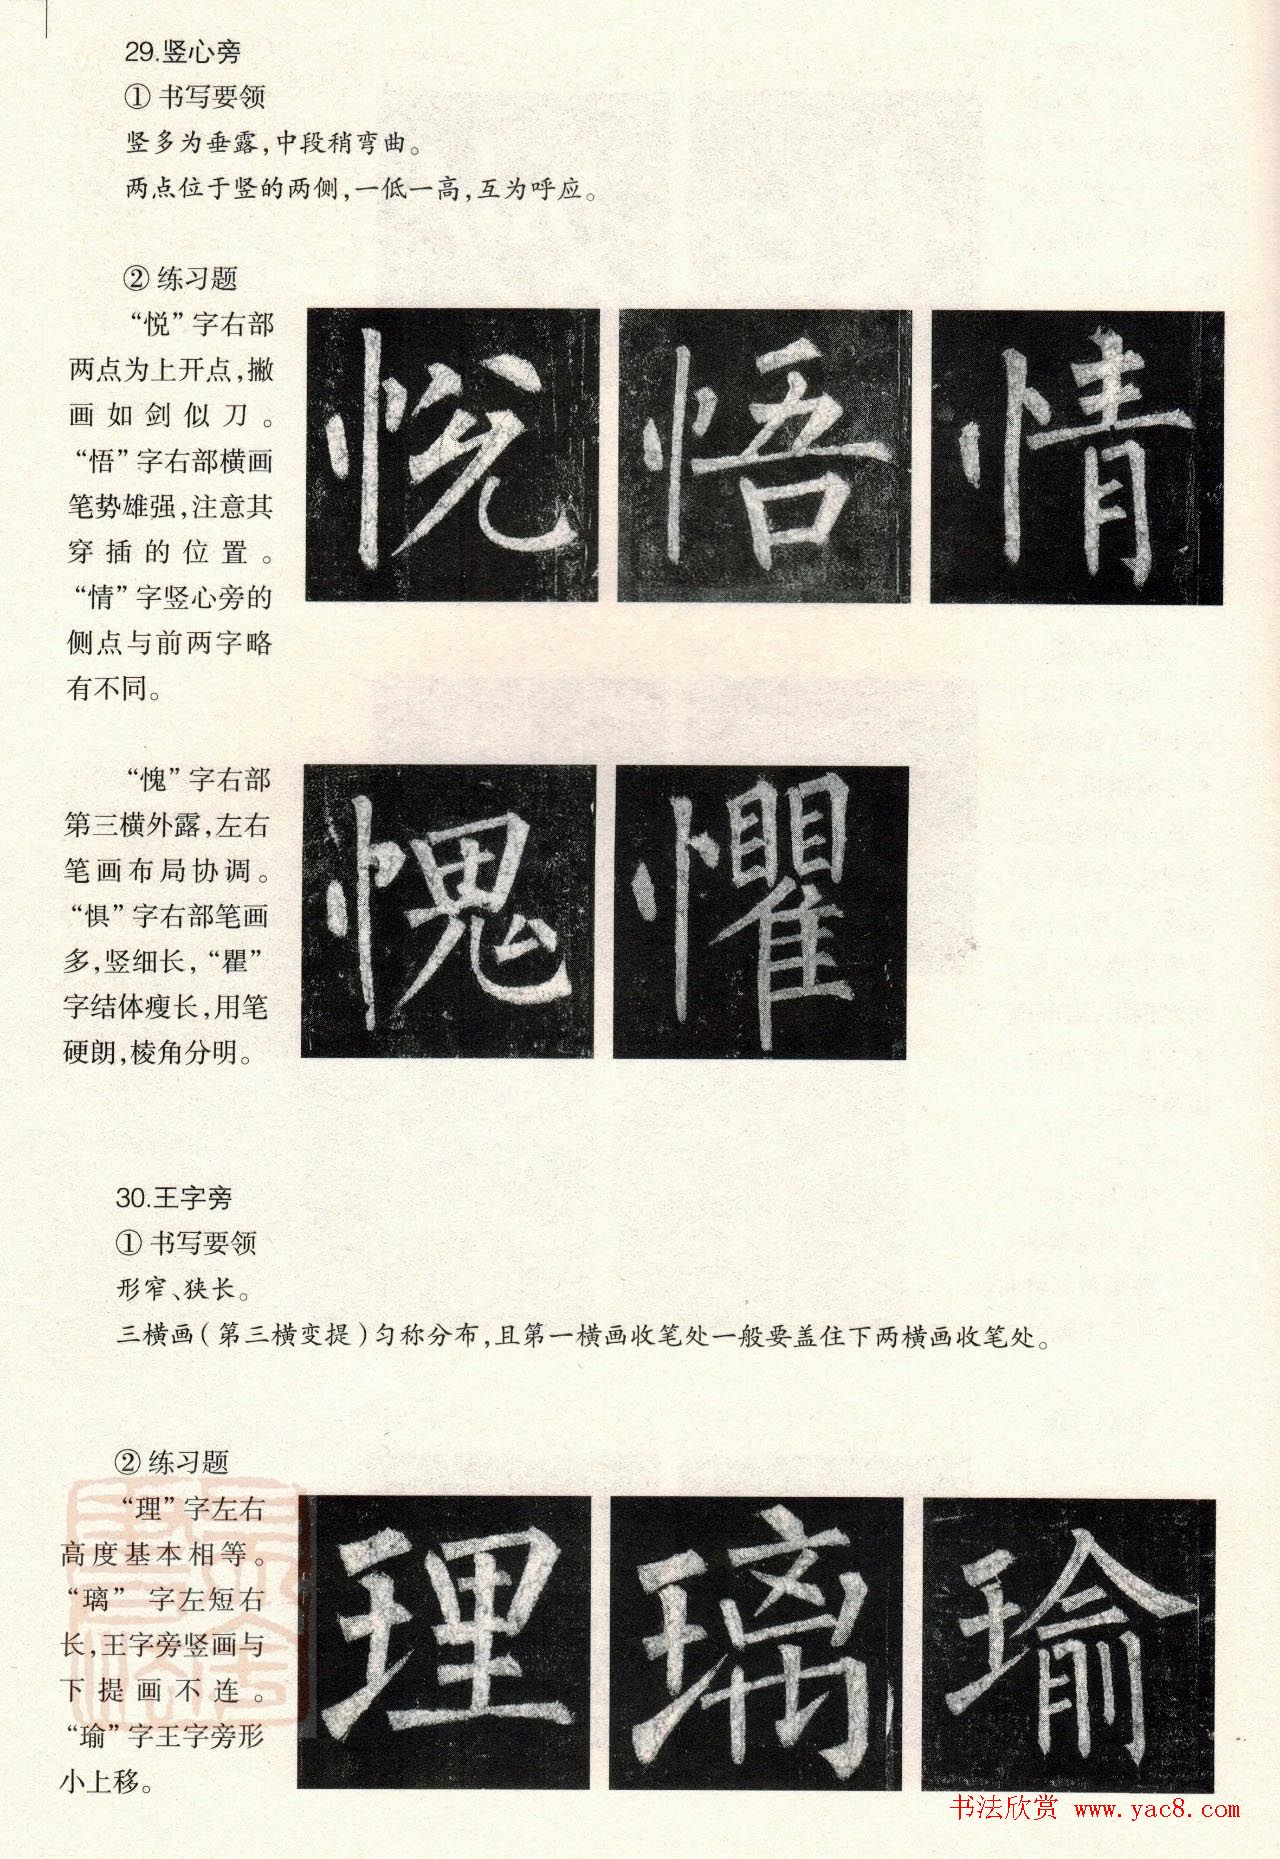 29.竖心旁
① 书写要领
竖多为垂露,中段稍弯曲。
两点位于竖的两侧,一低一高,互为呼应。
② 练习题
“悦”字右部
两点为上开点,撇
画如剑似刀。
“悟”字右部横画
笔势雄强,注意其
穿插的位置。
“情”字竖心旁的
侧点与前两字略
有不同。
悦 悟 情
“愧”字右部
第三横外露,左右
笔画布局协调。
“惧”字右部笔画
多,竖细长,“瞿”
字结体瘦长,用笔
硬朗,棱角分明。
愧 懼
30.王字旁
① 书写要领
形窄、狭长。
三横画(第三横变提)匀称分布,且第一横画收笔处一般要盖住下两横画收笔处。
② 练习题
“理”字左右
高度基本相等。
“璃”字左短右
长,王字旁竖画与
下提画不连。
“瑜”字王字旁形
小上移。
理 璃 瑜
书法欣赏 www.yac8.com